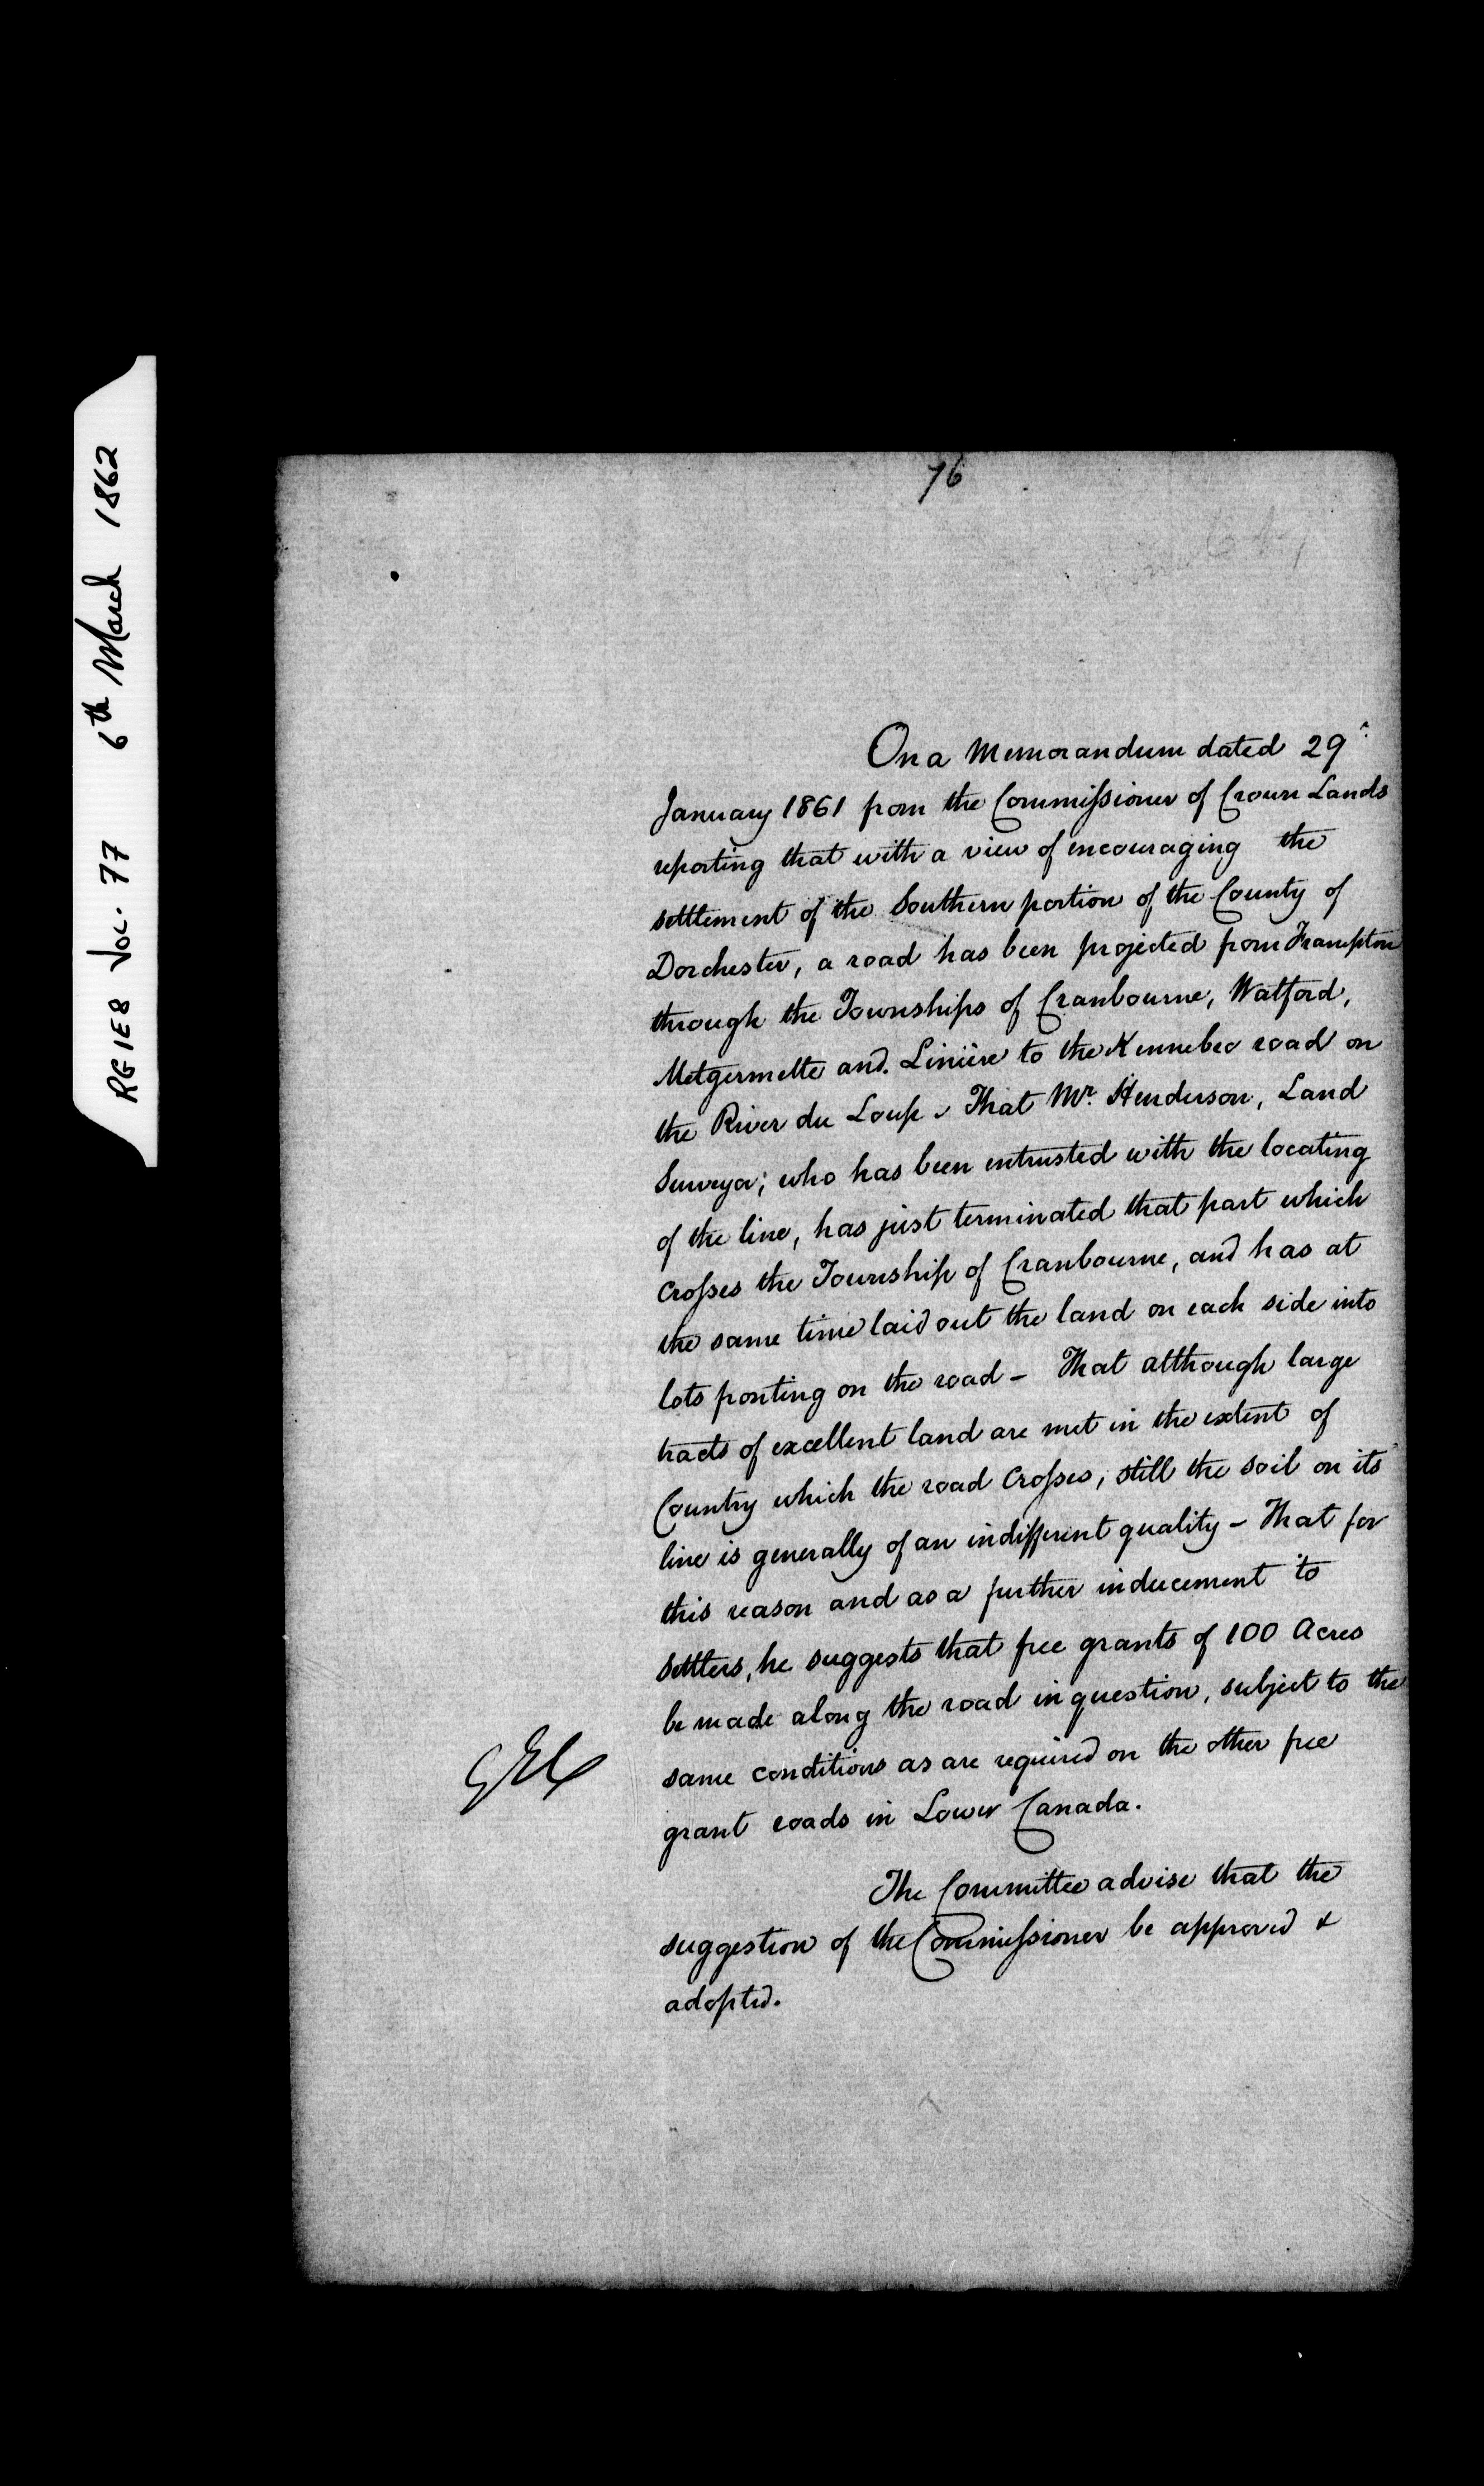 RG1E8 Vol. 77 6th March 1862
76
On a Memorandum dated 29
January 1861 from the Commissioner of Crown Lands
reporting that with a view of encouraging the
settlement of the Southern portion of the County of
Dorchester, a road has been projected from Frampton
through the Townships of Cranbourne, Watford,
Metgermette and Linière to the Kennebec road on
the River du Loup - That Mr. Henderson, Land
Surveyor; who has been entrusted with the locating
of the line, has just terminated that part which
crosses the Township of Cranbourne, and has at
the same time laid out the land on each side into
lots fronting on the road - That although large
tracts of excellent land are met in the extent of
Country which the road crosses, still the soil on its
line is generally of an indifferent quality - That for
this reason and as a further inducement to
settlers, he suggests that free grants of 100 Acres
be made along the road in question, subject to the
same conditions as are required on the other free
grant roads in Lower Canada.
GEC
The Committee advise that the
suggestion of the Commissioner be approved &
adopted.